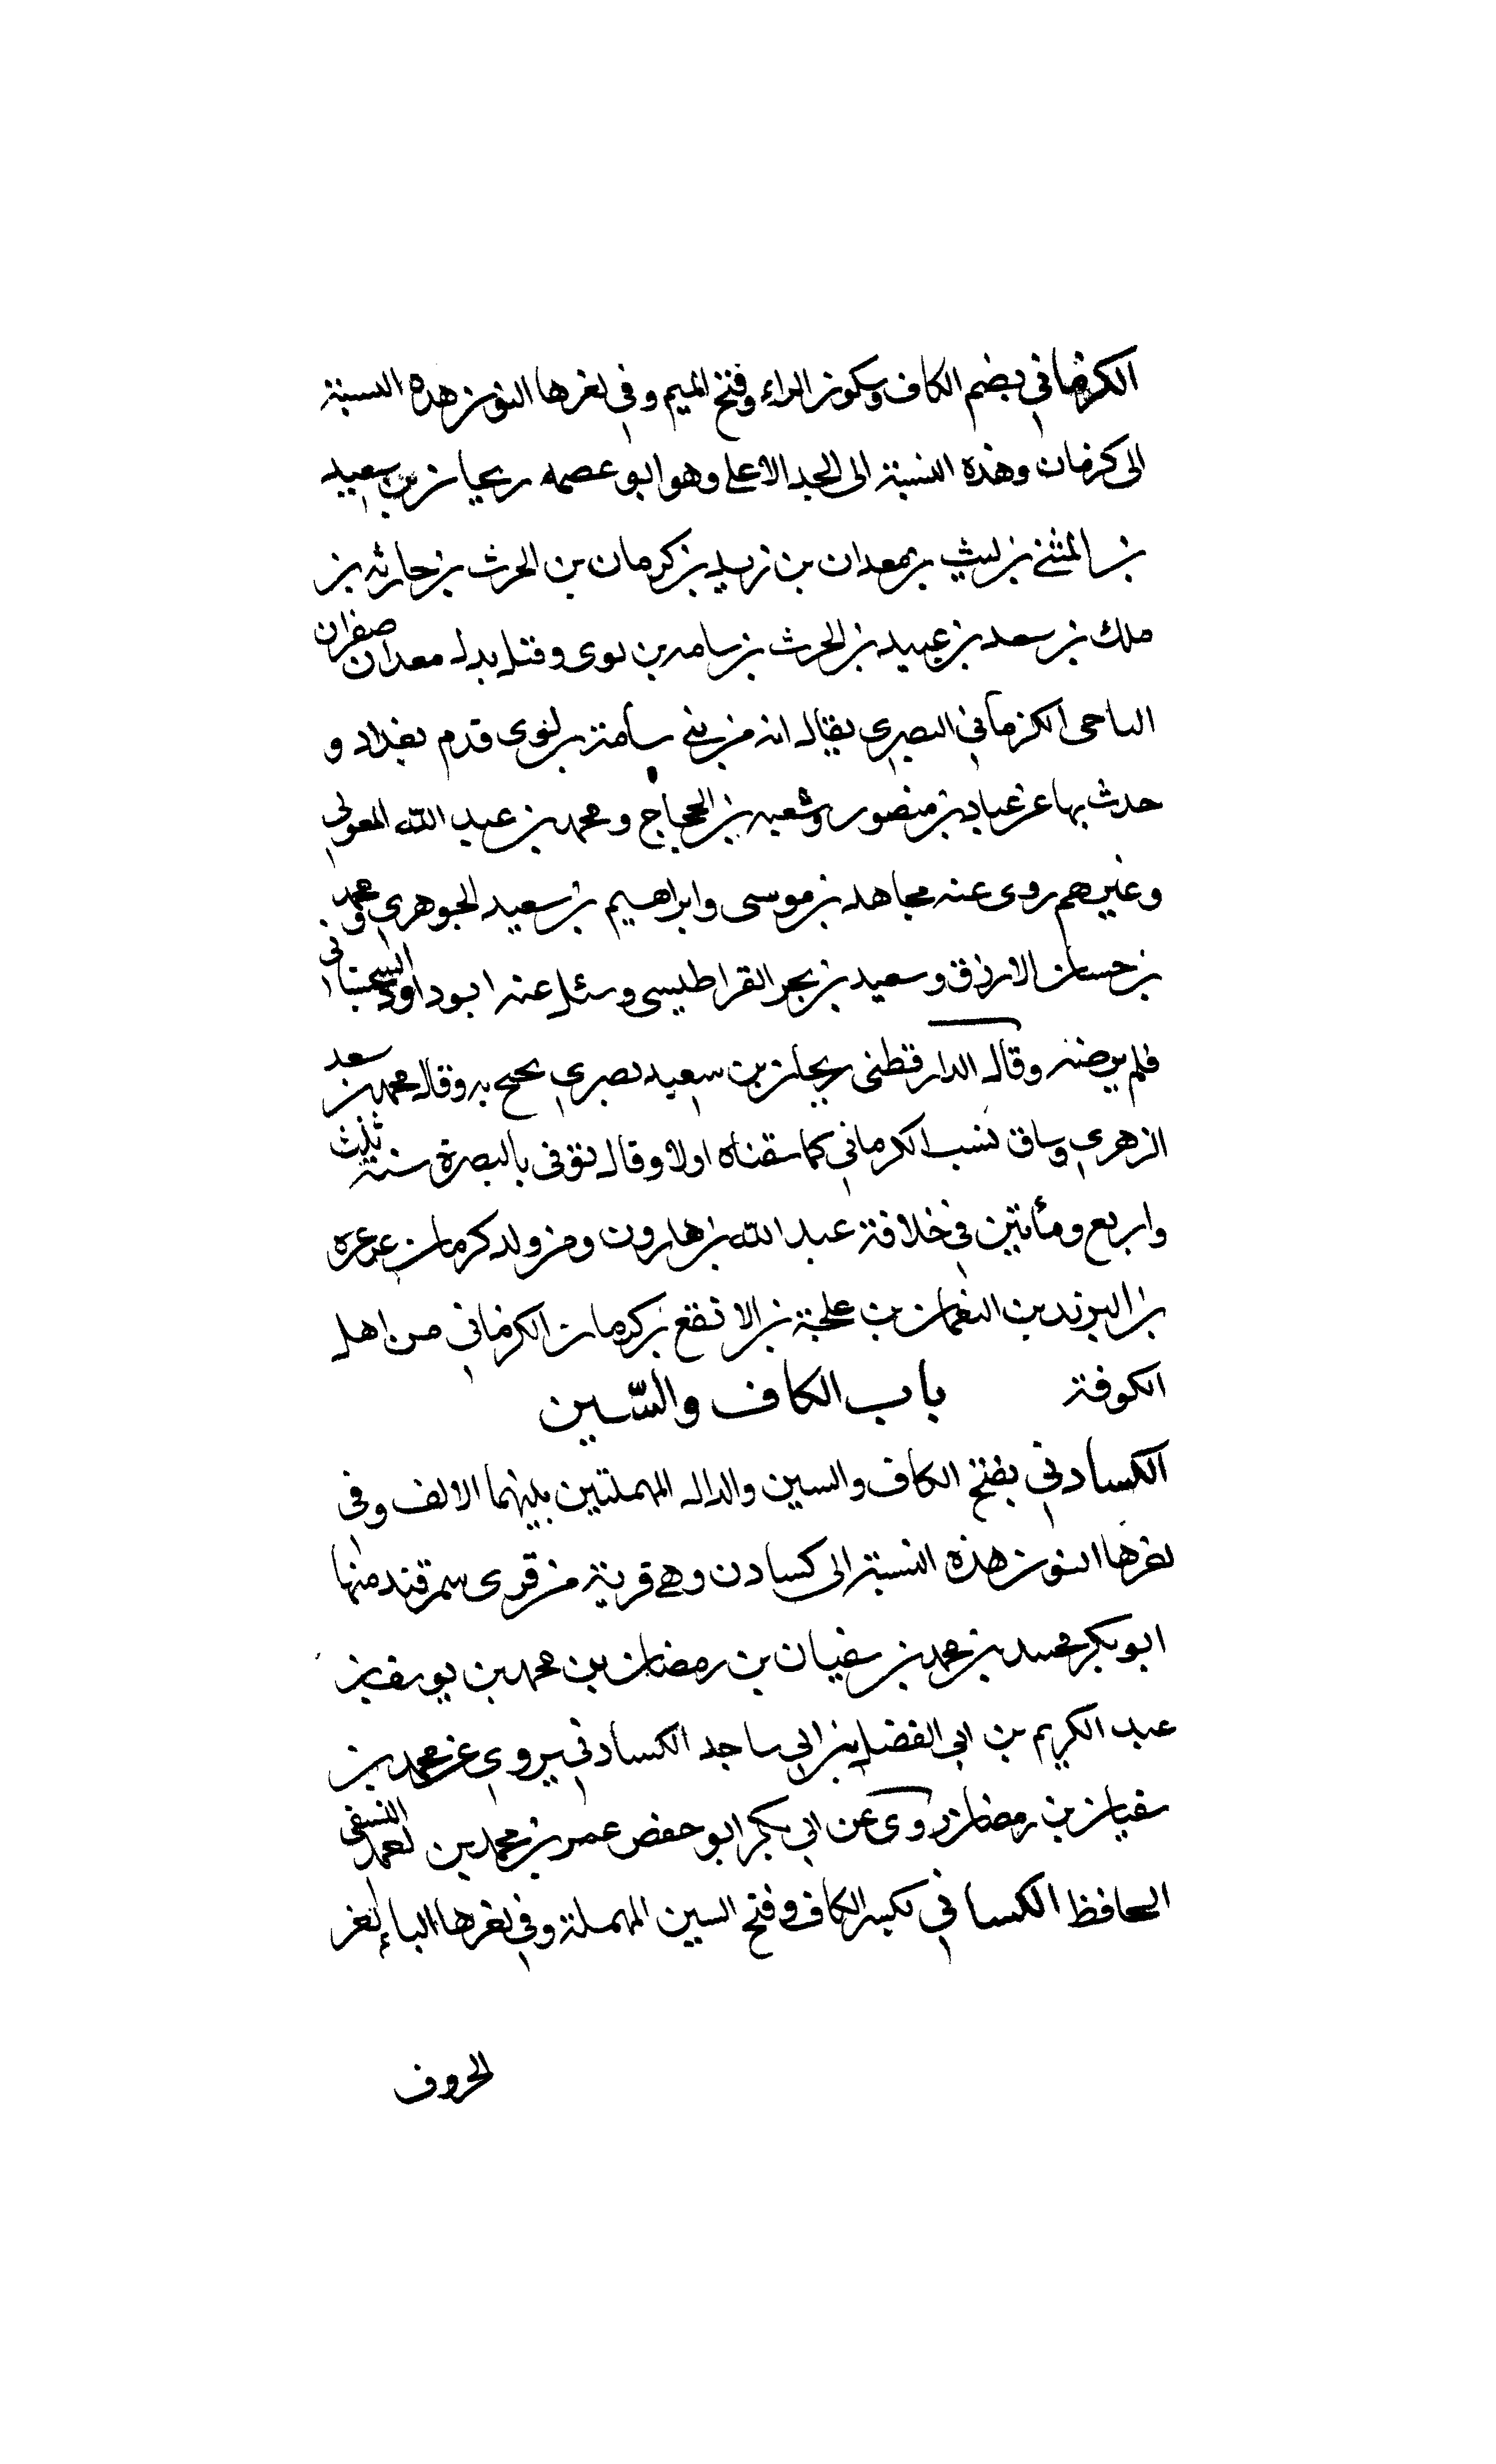 الكرماني بضم الكاف وسكون الراء وفتح الميم وفي اخرها النون هذه النسبة
الى كرمان وهذه النسبة الى الجد الاعلى وهو ابو عصمه ريحان بن سعيد
بن المثنى بن ليث بن معدان بن زيد بن كرمان بن الحرث بن حارثه بن
ملك بن سعد بن عبيد بن الحرث بن سامه بن لوى وقيل بدل معدان صفران
الناجى الكرماني البصري يقال انه من بني سامة بن لؤى قدم بغداد و
حدث بها عن عباد بن منصور وشعبه بن الحجاج ومحمد بن عبد الله المعولي
وغيرهم روى عنه مجاهد بن موسى وابراهيم بن سعيد الجوهري ومحمد
بن حسان الازرق وسعيد بن بحر القراطيسى وسئل عنه ابو داود السجستاني
فلم يرضه وقال الدارقطنى ريحان بن سعيد بصري يحتج به وقال محمد بن سعد
الزهري وساق نسب الكرماني كما سقناه اولا وقال توفى بالبصرة سنة ثلث
واربع ومأتين في خلافة عبد الله بن هارون ومن ولد كرمان عرعره
بن البرند بن النعمان بن علجة بن الانقع بن كرمان الكرماني من اهل
الكوفة باب الكاف والسّين
الكسادني بفتح الكاف والسين والدال المهملتين بينهما الالف وفي
اخرها النون هذه النسبة الى كسادن وهي قرية من قرى سمرقند منها
ابو بكر محمد بن محمد بن سفيان بن رمضان بن محمد بن يوسف بن
عبد الكريم بن ابي الفضل بن ابي ساجد الكسادني يروي عن محمد بن
سفيان بن رمضان روى عن ابي بكر ابو حفص عمر بن محمد بن احمد النسفى
الحافظ الكساني بكسر الكاف وفتح السين المهملة وفي اخرها الياء اخر
الحروف